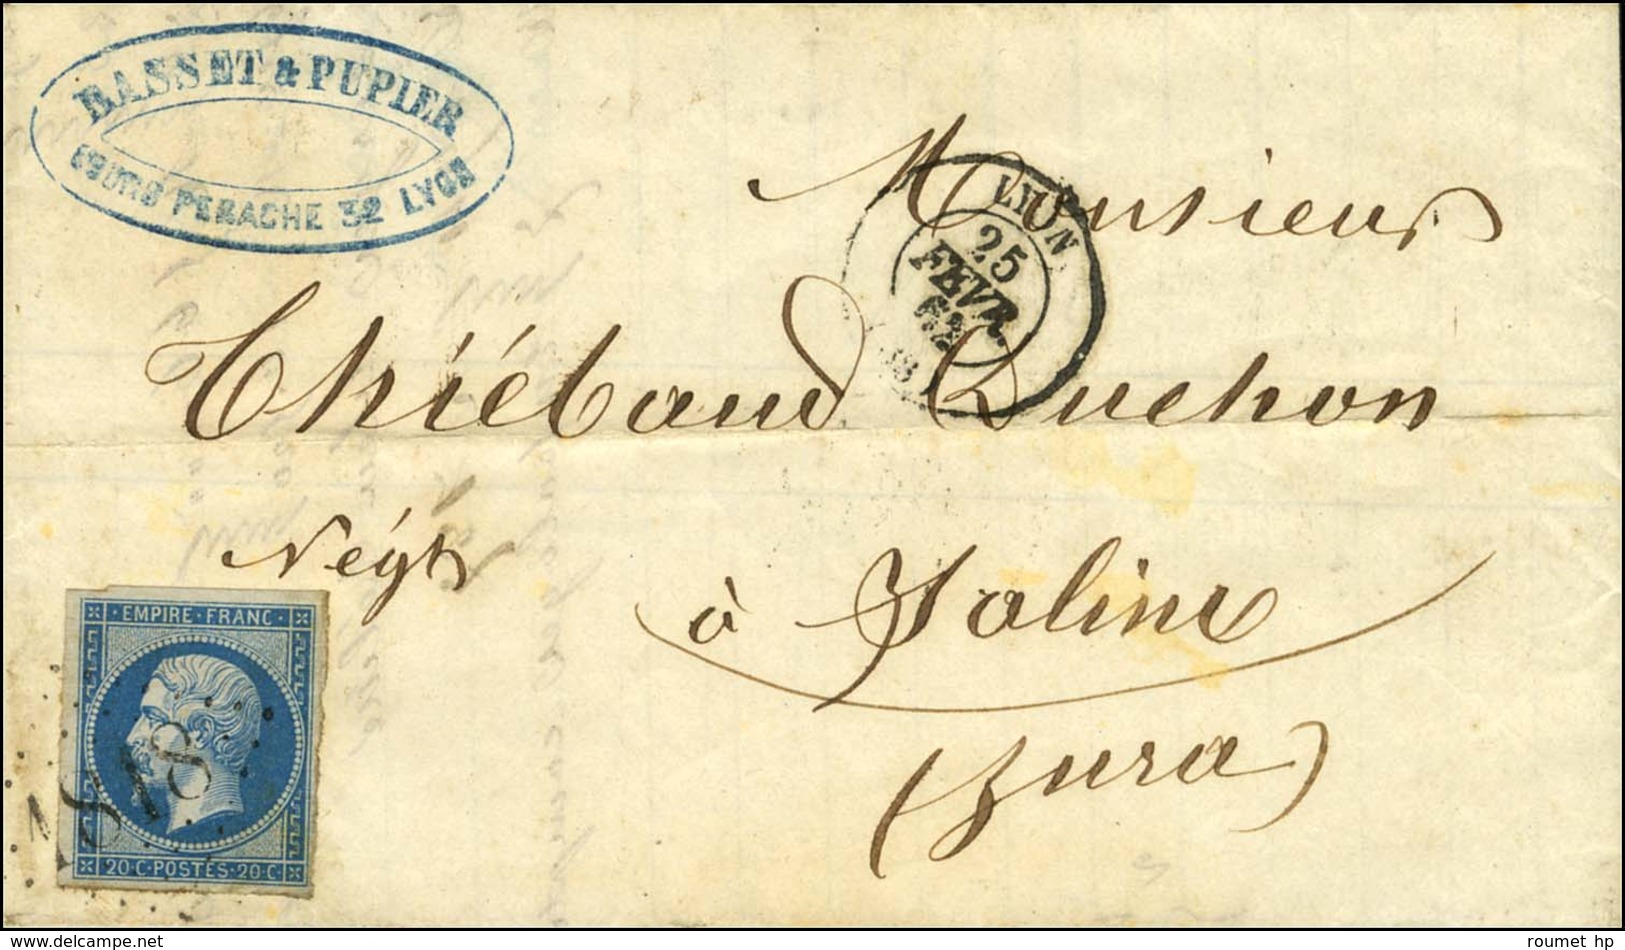 BASSET & PUPIER
COURS PERACHE 32 LYON
LYON
25
FEVR.
62
Monsieur
Thiébaud Duchon
Négt
à Salins
(Jura)
EMPIRE · FRANC ·
1818
20 · C · POSTES · 20 · C ·
www.delcampe.net
roumet hp